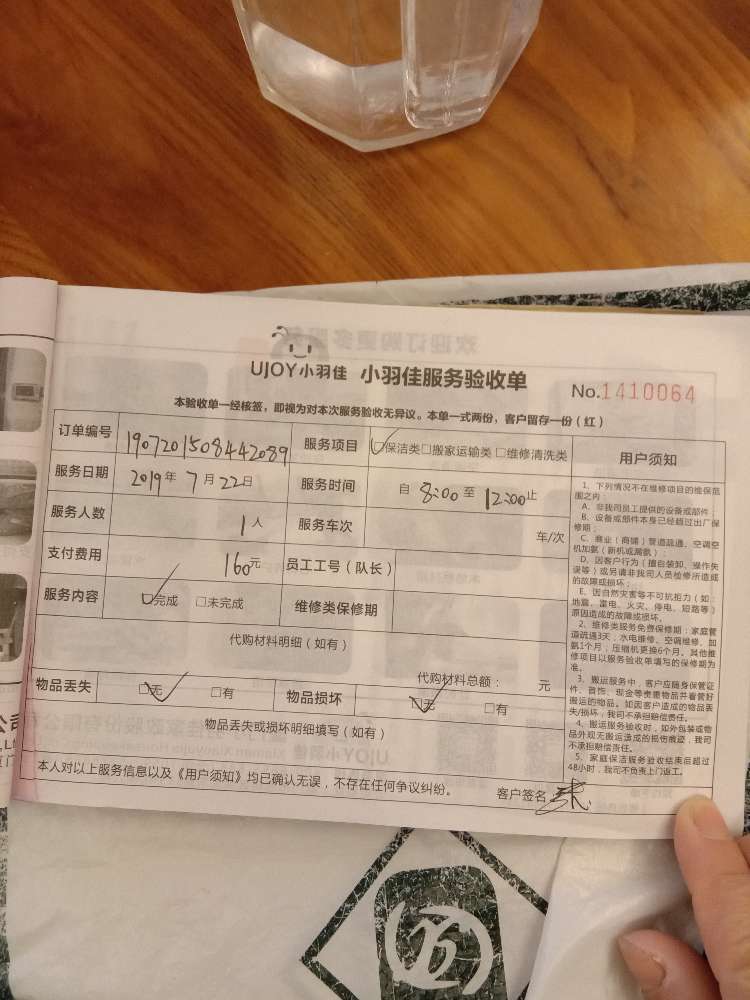 UJOY小羽佳 小羽佳服务验收单
No.1410064
本验收单一经核签，即视为对本次服务验收无异议。本单一式两份，客户留存一份（红）
订单编号 1907201508442089 服务项目 ☑保洁类□搬家运输类□维修清洗类
服务日期 2019年 7月22日 服务时间 自 8:00 至 12:00止
服务人数 1人 服务车次 车/次
支付费用 160元 员工工号（队长）
服务内容 ☑完成 □未完成 维修类保修期
代购材料明细（如有）
代购材料总额： 元
物品丢失 ☑无 □有 物品损坏 ☑无 □有
物品丢失或损坏明细填写（如有）
本人对以上服务信息以及《用户须知》均已确认无误，不存在任何争议纠纷。 客户签名：
用户须知
1、下列情况不在维修项目的维保范
围之内：
A、非我司员工提供的设备或部件；
B、设备或部件本身已经超过出厂保
修期；
C、商业（商铺）管道疏通、空调空
机加氨（新机或漏氨）；
D、因客户行为（擅自装卸、操作失
误等）或另请非我司人员检修所造成
的故障或损坏；
E、因自然灾害等不可抗拒力（如：
地震、雷电、火灾、停电、短路等）
原因造成的故障或损坏。
2、维修类服务免费保修期：家庭管
道疏通3天，水电维修、空调维修、加
氨1个月；压缩机更换6个月。其他维
修项目以服务验收单填写的保修期为
准。
3、搬运服务中，客户应随身保管证
件、首饰、现金等贵重物品并看管好
搬运的物品。如因客户造成的物品丢
失/损坏，我司不承担赔偿责任。
4、搬运服务验收时，如外包装或物
品外观无搬运造成的损伤痕迹，我司
不承担赔偿责任。
5、家庭保洁服务验收结束后超过
48小时，我司不负责上门返工。